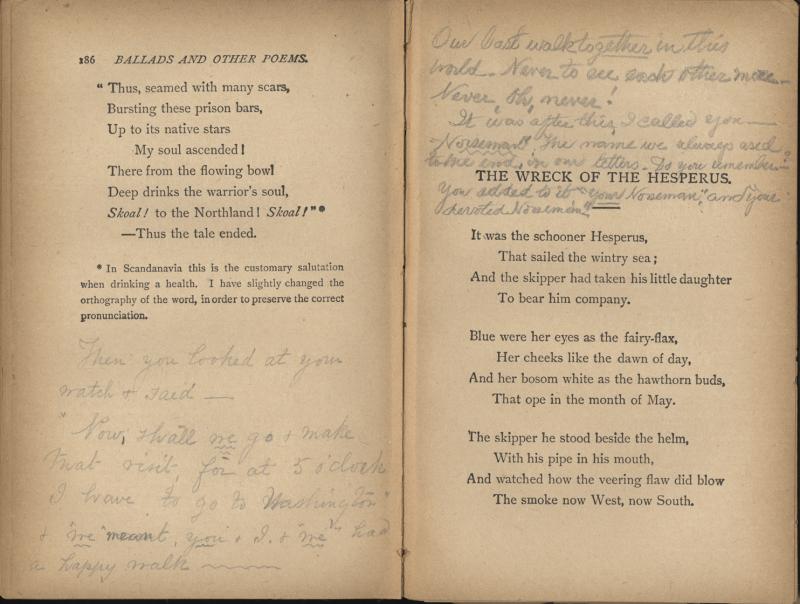 186 BALLADS AND OTHER POEMS.
"Thus, seamed with many scars,
Bursting these prison bars,
Up to its native stars
My soul ascended!
There from the flowing bowl
Deep drinks the warrior's soul,
Skoal! to the Northland! Skoal!"*
—Thus the tale ended.
* In Scandanavia this is the customary salutation
when drinking a health. I have slightly changed the
orthography of the word, in order to preserve the correct
pronunciation.
Then you looked at your
watch & said —
"Now, shall we go & make
that visit, for at 5 o'clock
I have to go to Washington"
& "we" meant, you & I. & "we" had
a happy walk
Our last walk together in this
world. Never to see each other more—
Never, oh, never!
It was after this, I called you —
Norseman", the name we always used
to the end, in our letters. Do you remember
THE WRECK OF THE HESPERUS.
you added to it "your Norseman", and "your
devoted Norseman".
It was the schooner Hesperus,
That sailed the wintry sea;
And the skipper had taken his little daughter
To bear him company.
Blue were her eyes as the fairy-flax,
Her cheeks like the dawn of day,
And her bosom white as the hawthorn buds,
That ope in the month of May.
The skipper he stood beside the helm,
With his pipe in his mouth,
And watched how the veering flaw did blow
The smoke now West, now South.